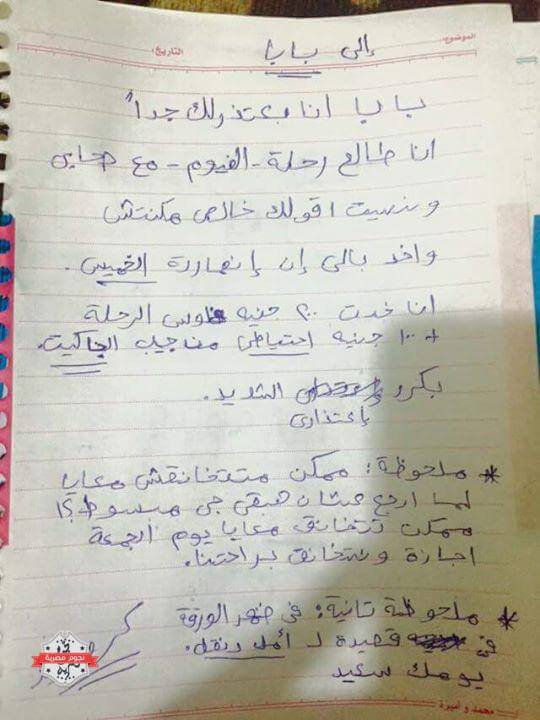 الموضوع:
التاريخ:
إلى بابا
بابا أنا بعتذرلك جداً
انا طالع رحلة - الفيوم - مع صحابى
ونسيت اقولك خالص مكنتش
واخد بالى إن إنهاردة الخميس.
انا خدت ٢٠٠ جنيه فلوس الرحلة
+ ١٠٠ جنيه احتياطى من جيب الجاكيت.
بكرر إعتذارى الشديد.
* ملحوظة: ممكن متتخانقش معايا
لما ارجع عشان هبقى جى مبسوط؟!
ممكن تتخانق معايا يوم الجمعة
اجازة ونتخانق براحتنا.
* ملحوظة تانية: فى ضهر الورقة
فى قصيدة لـ أمل دنقل.
يومك سعيد
نجوم مصرية
محمد و أميرة